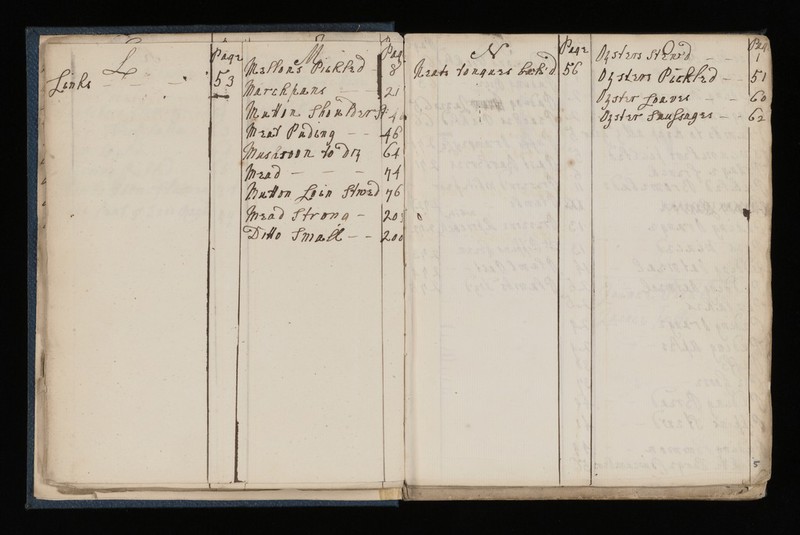 L Page
Links 53
M Pag
Mellons Pickled 8
Marchpans 21
Mutton Shoulder
Meat Puding 46
Mushroon to dry 64
Mead 74
Mutton Loin Stwed 76
Mead Strong 20
Ditto Small 200
N Page
Neats tongues 56
O Pag
Oysters Stewd 1
Oysters Pickled 51
Oyster Loaves 60
Oyster Sausages 62